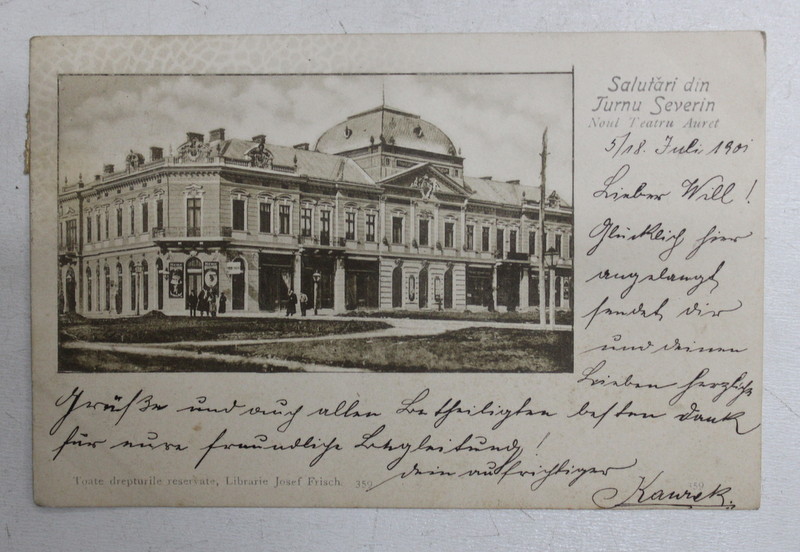 Salutări din
Turnu Severin
Noul Teatru Auret
5/18. Juli 1901
Lieber Will!
Glücklich hier
angelangt
sendet dir
und deinen
Lieben herzliche
Grüße und auch allen Betheiligten besten Dank
für eure freundliche Begleitung!
dein aufrichtiger
Toate drepturile reservate, Librarie Josef Frisch. 359
359